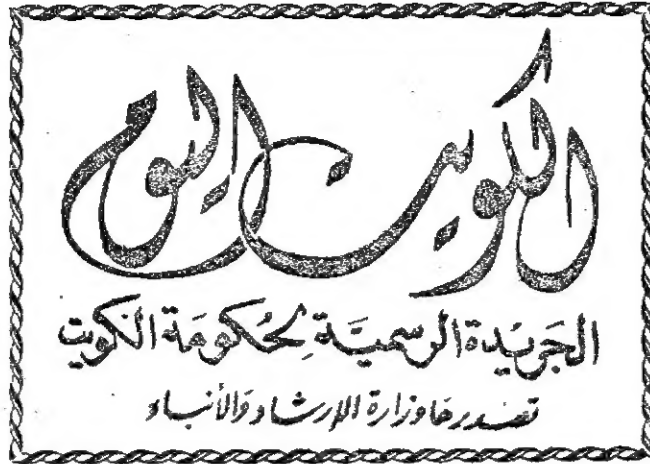 الكويت اليوم
الجَريْدة الرسميَّة لِحُكومَة الكويت
تصدرها وزارة الإرشاد والأنباء